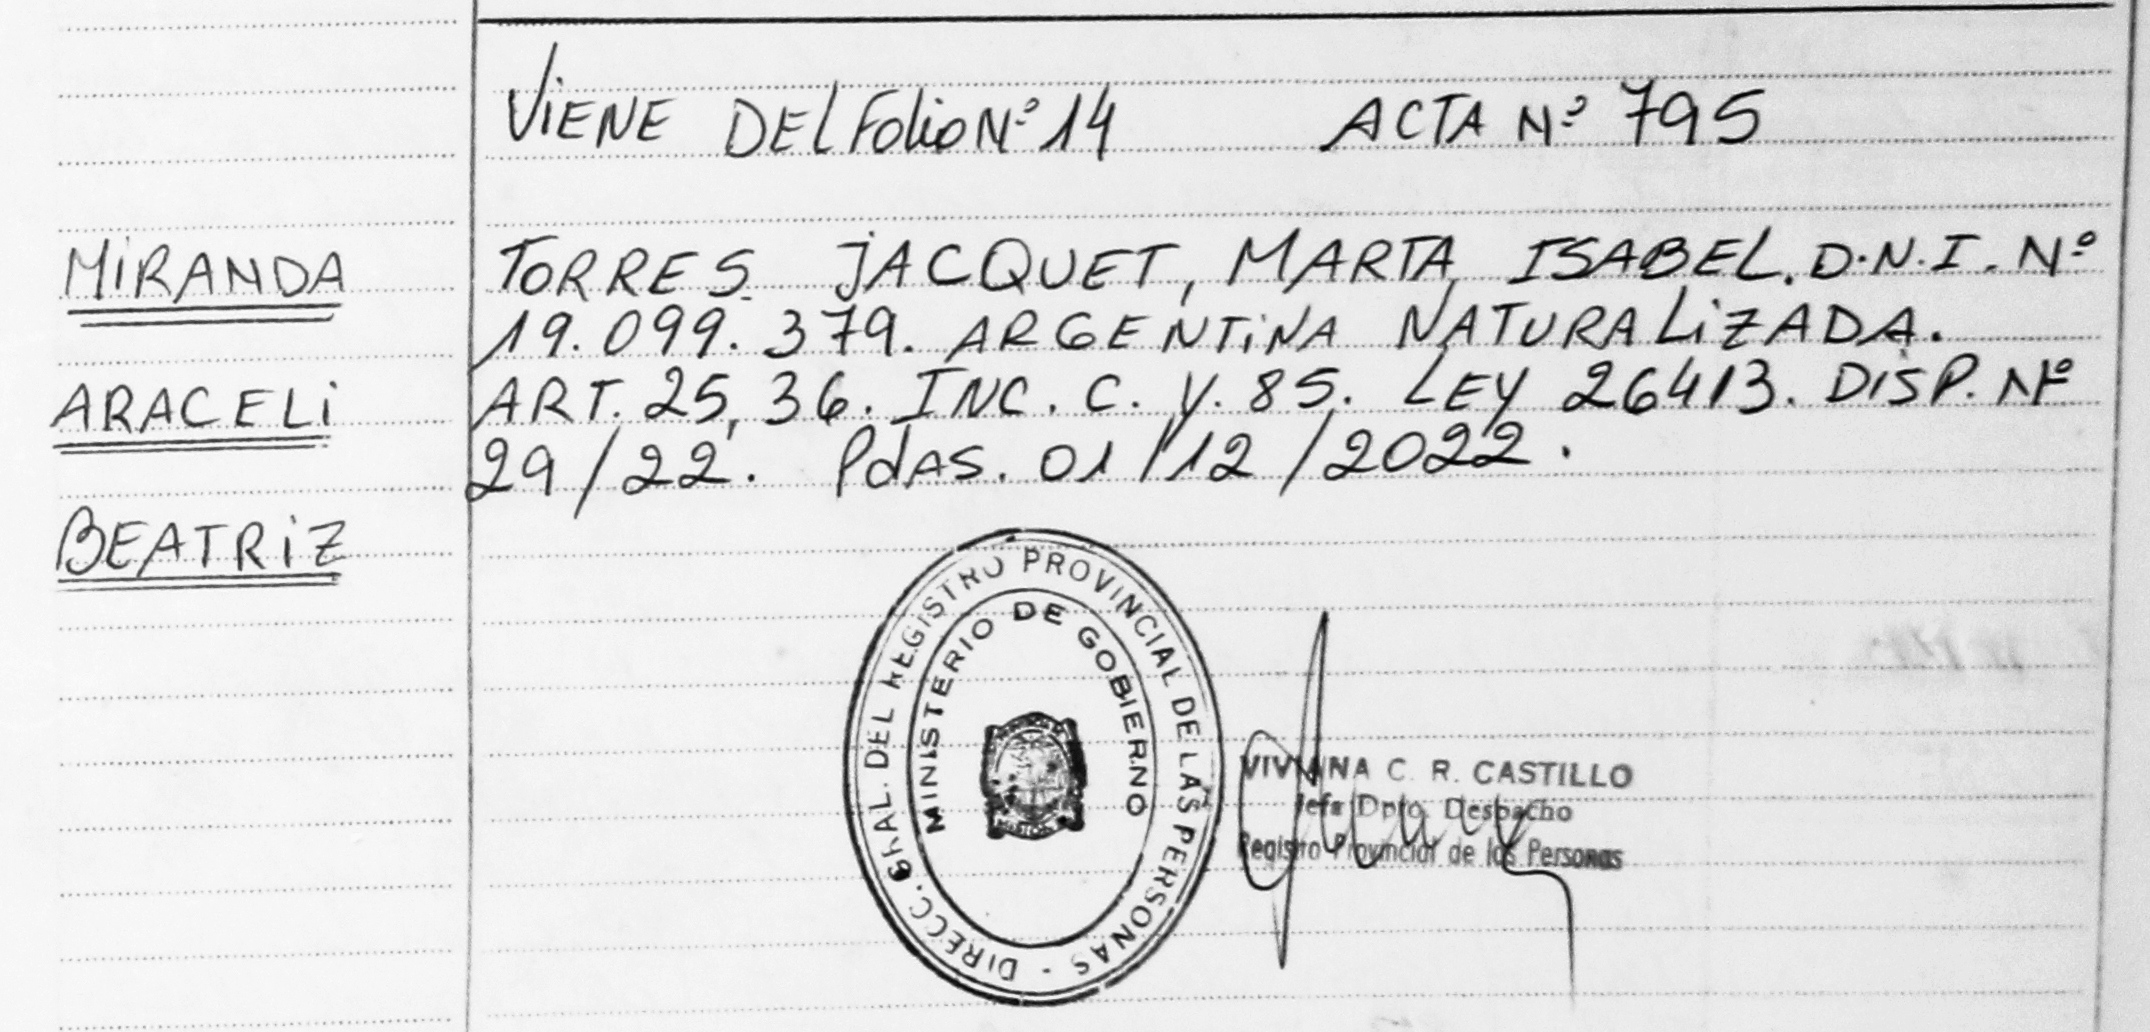 VIENE DEL Folio Nº 14 ACTA Nº 795
MIRANDA
ARACELI
BEATRIZ
TORRES JACQUET, MARTA ISABEL. D.N.I. Nº
19.099.379. ARGENTINA NATURALIZADA.
ART. 25, 36. INC. C. Y. 85. LEY 26413. DISP. Nº
29/22. PdAS. 01/12/2022.
DIRECC. GRAL. DEL REGISTRO PROVINCIAL DE LAS PERSONAS -
MINISTERIO DE GOBIERNO
VIVIANA C. R. CASTILLO
Jefa Dpto. Despacho
Registro Provincial de las Personas